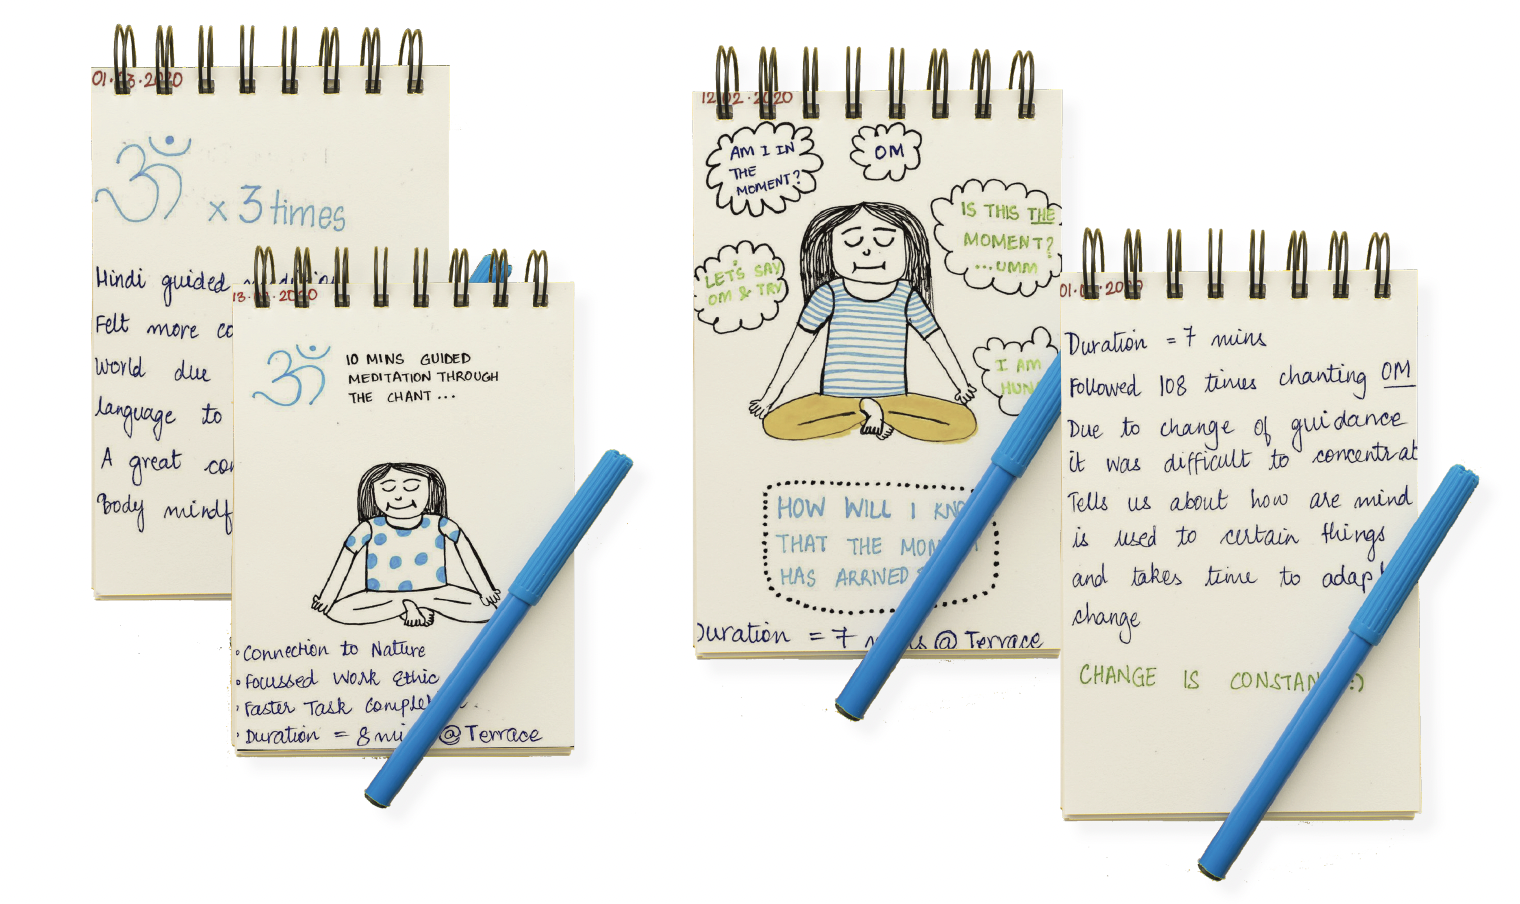 01.03.2020
ॐ x 3 times
Hindi guided
Felt more
World due
language to
A great
Body
2020
ॐ
10 MINS GUIDED
MEDITATION THROUGH
THE CHANT...
• Connection to Nature
• Focussed Work Ethic
• Faster Task
• Duration = 8 @ Terrace
12.02.2020
AM I IN
THE
MOMENT?
OM
IS THIS THE
MOMENT?
...UMM
LET'S SAY
OM & TRY
I AM
HOW WILL I
THAT THE
HAS ARRIVED
Duration = 7 @ Terrace
Duration = 7 mins
Followed 108 times chanting OM
Due to change of guidance
it was difficult to concentrat
Tells us about how are mind
is used to certain things
and takes time to
change
CHANGE IS :)